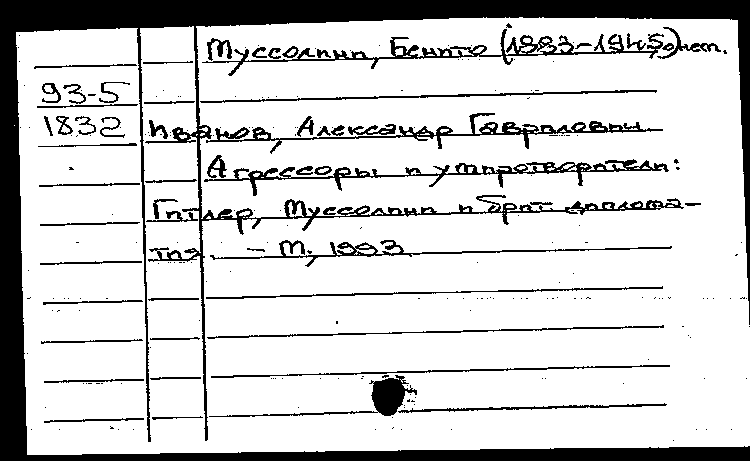 Муссолини, Бенито (1883-1945) нем.
93-5
1832 Иванов, Александр Гаврилович.
Агрессоры и умиротворители:
Гитлер, Муссолини и брит. диплома-
тия. - М., 1993